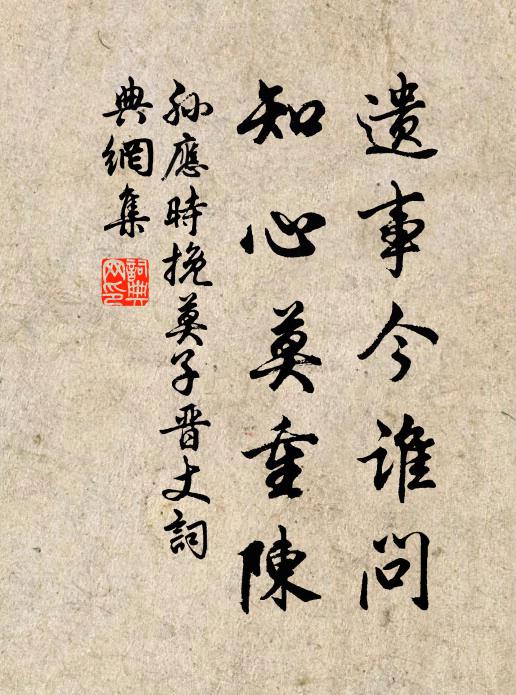 遺事今誰問
知心莫重陳
孫應時挽莫子晋丈詞
典網集
詞典
网印